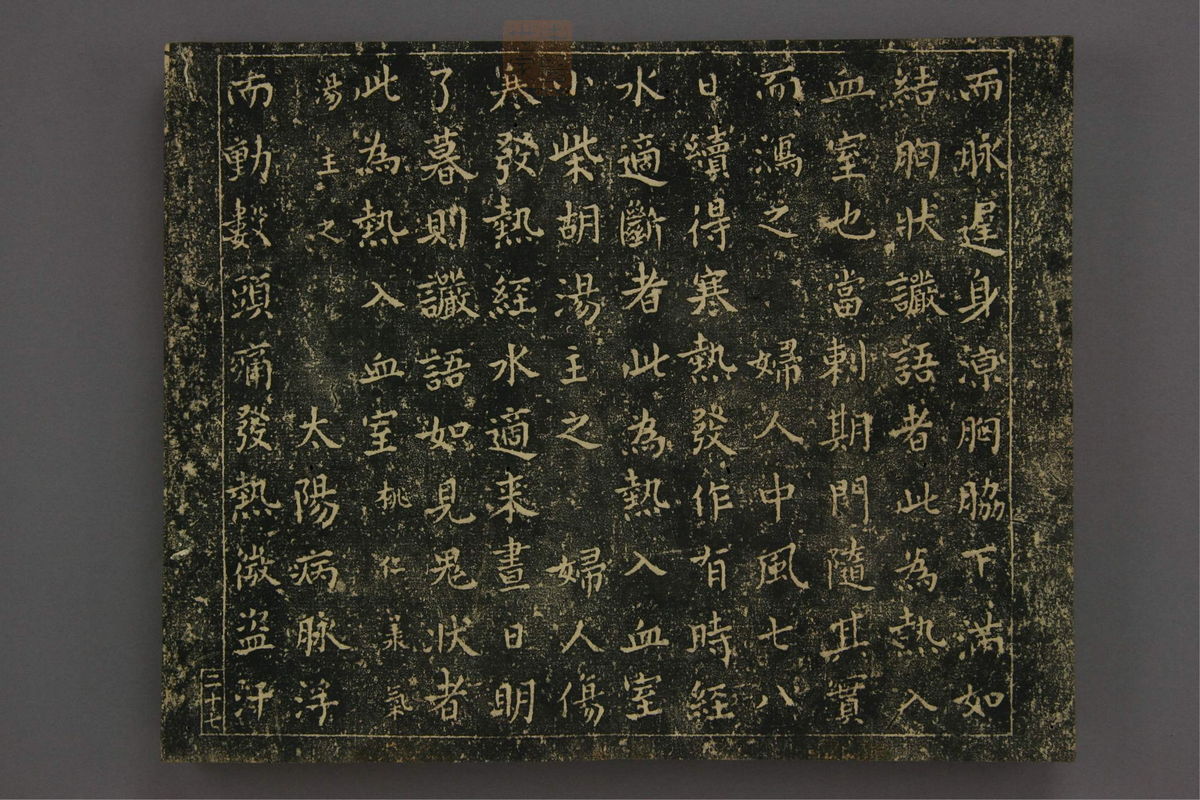 而脉遲身涼胸脇下滿如
結胸狀讝語者此為熱入
血室也當刺期門隨其實
而瀉之　婦人中風七八
日續得寒熱發作有時經
水適斷者此為熱入血室
小柴胡湯主之　婦人傷
寒發熱經水適来晝日明
了暮則讝語如見鬼狀者
此為熱入血室桃仁承氣
湯主之　太陽病脉浮
而動數頭痛發熱微盗汗
二十七